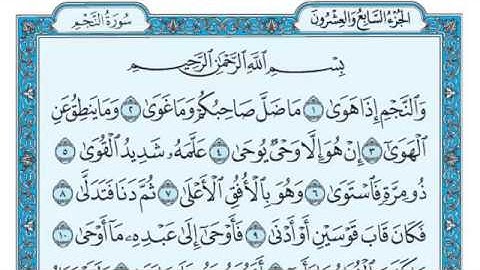 الجُزْءُ السَّابِعُ وَالْعِشْرُونَ
سُورَةُ النَّجْمِ
بِسْمِ اللَّهِ الرَّحْمَٰنِ الرَّحِيمِ
وَالنَّجْمِ إِذَا هَوَىٰ ١ مَا ضَلَّ صَاحِبُكُمْ وَمَا غَوَىٰ ٢ وَمَا يَنطِقُ عَنِ
الْهَوَىٰ ٣ إِنْ هُوَ إِلَّا وَحْيٌ يُوحَىٰ ٤ عَلَّمَهُ شَدِيدُ الْقُوَىٰ ٥
ذُو مِرَّةٍ فَاسْتَوَىٰ ٦ وَهُوَ بِالْأُفُقِ الْأَعْلَىٰ ٧ ثُمَّ دَنَا فَتَدَلَّىٰ ٨
فَكَانَ قَابَ قَوْسَيْنِ أَوْ أَدْنَىٰ ٩ فَأَوْحَىٰ إِلَىٰ عَبْدِهِ مَا أَوْحَىٰ ١٠